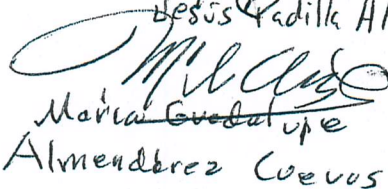 Jesús Padilla Al
María Guadalupe
Almendárez Cuevas